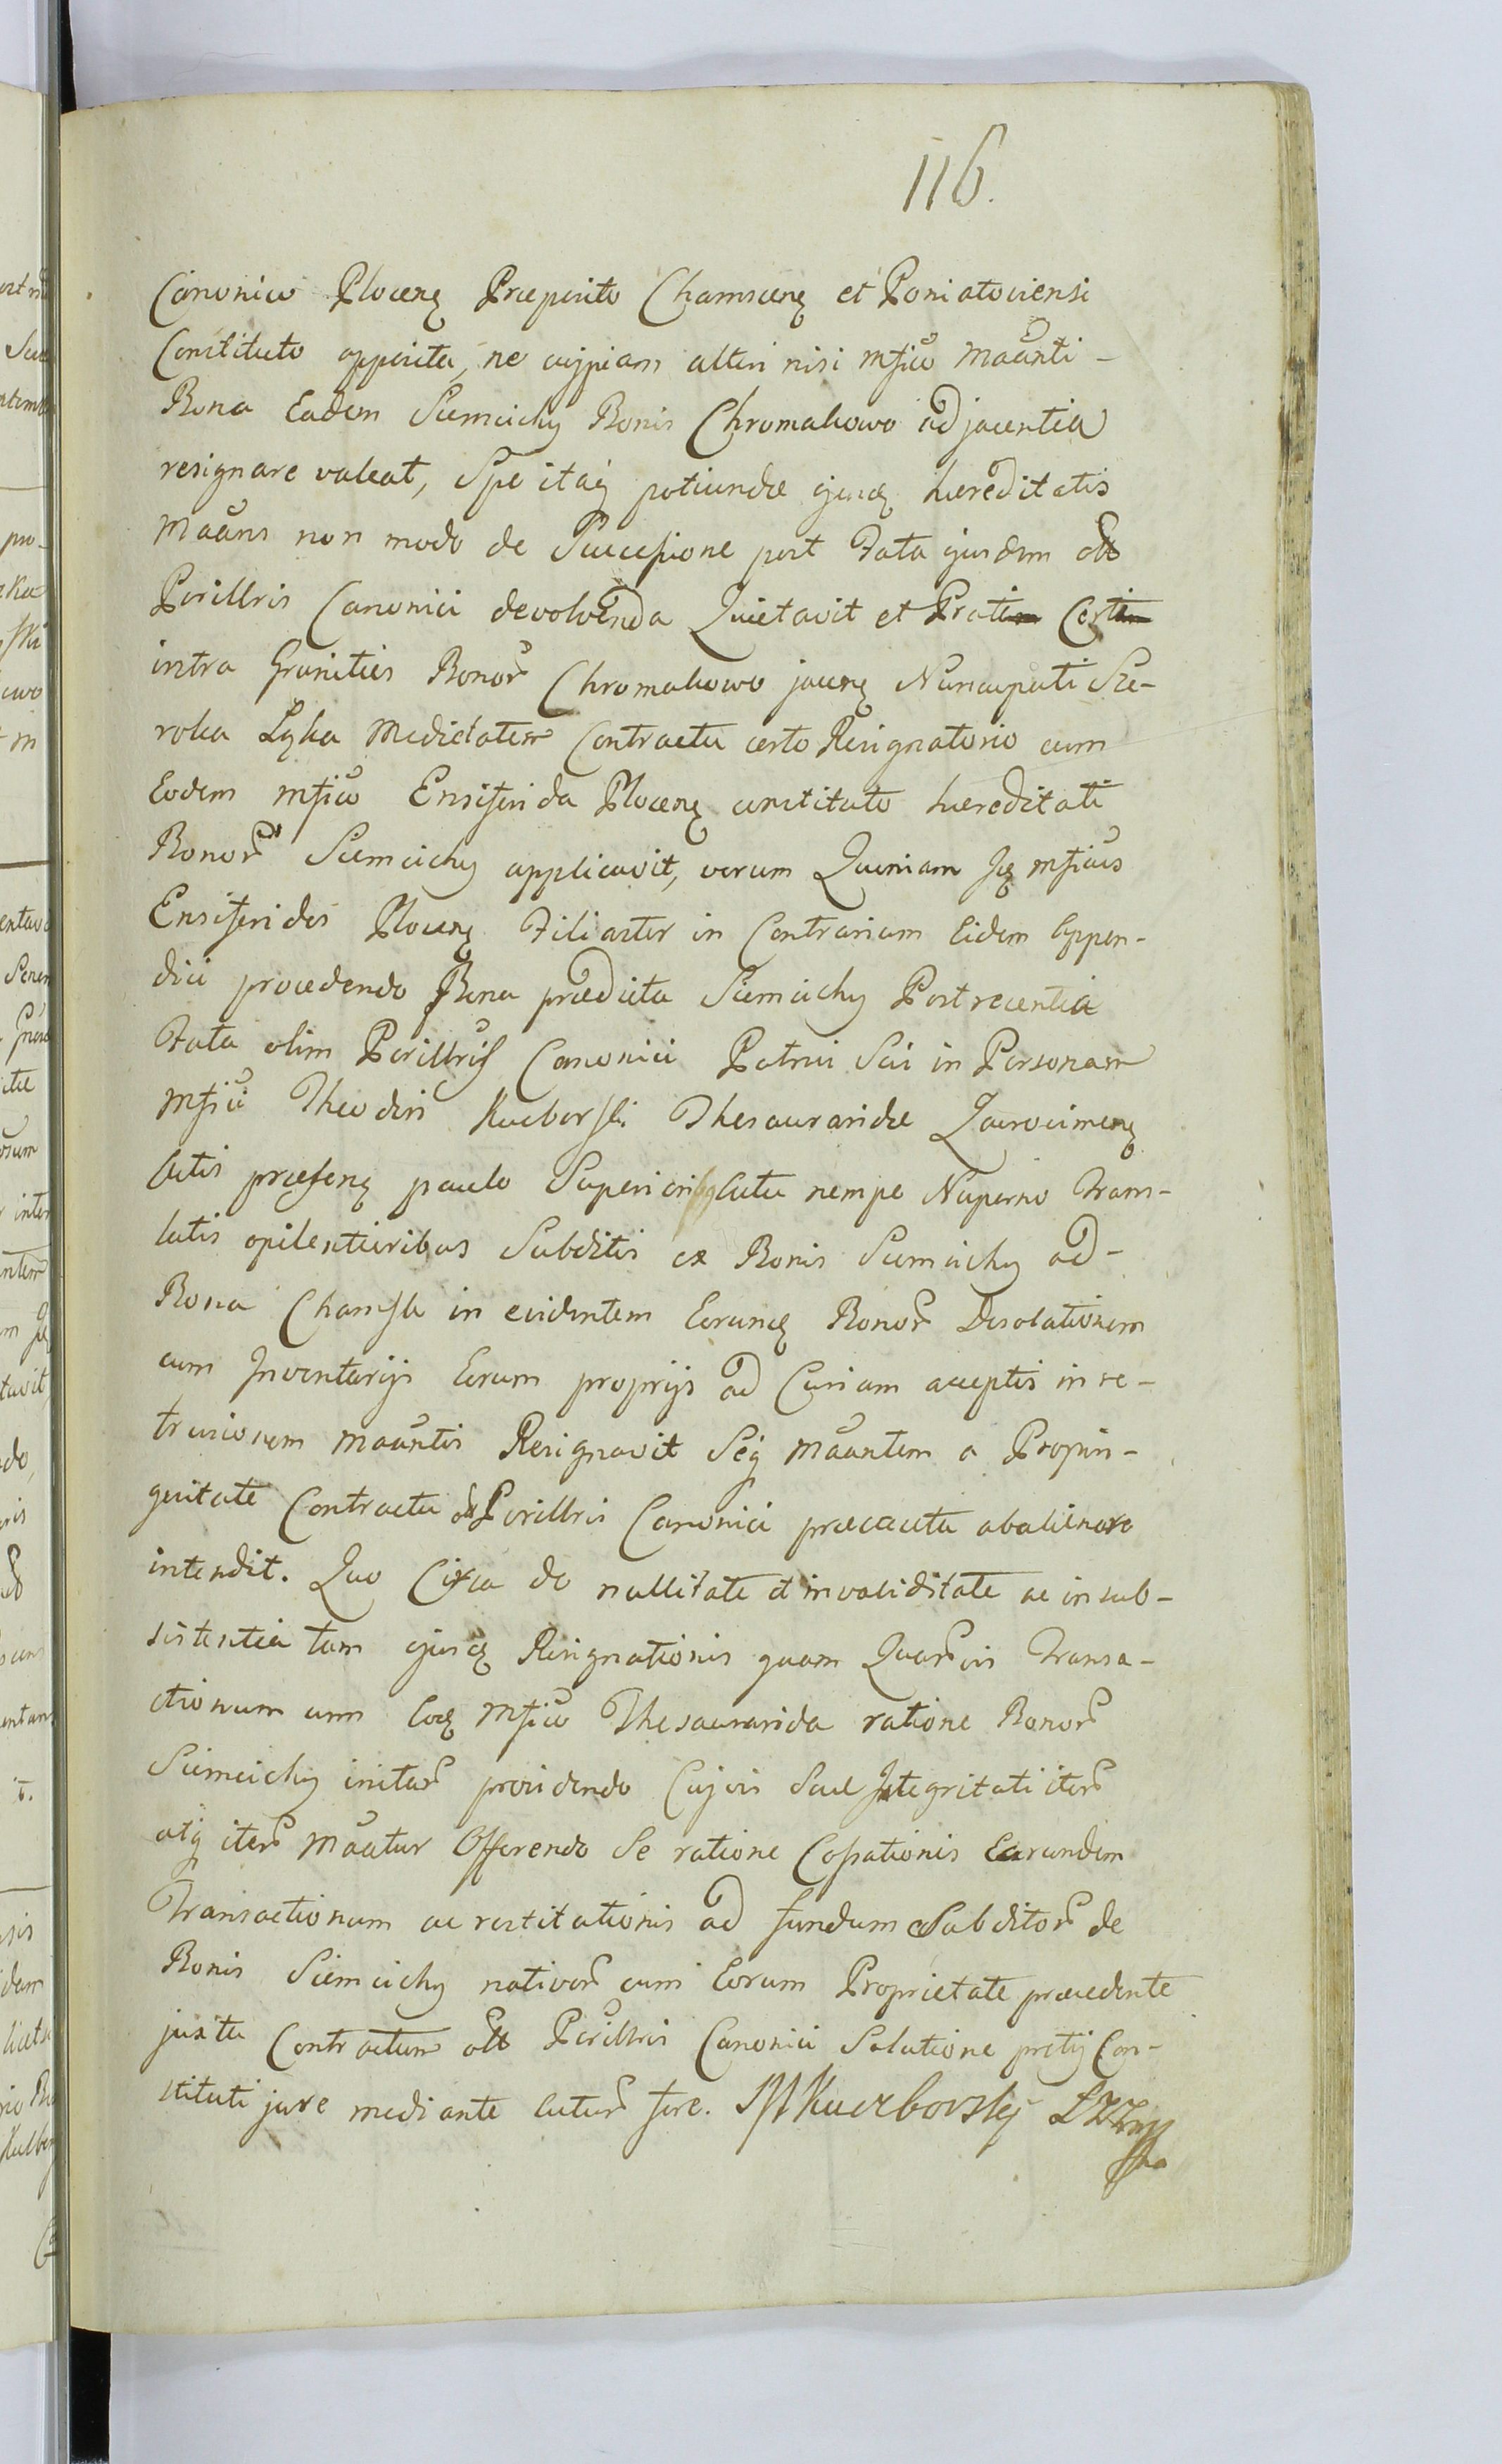 116.
Canonico Plocenẽ Præposito Chamscenẽ et Poniatoviensi
Constituto apposita, ne cuipiam alteri nisi mfico maũnti-
Bona Eadem Siemcichy Bonis Chromakowo adjacentia
resignare valeat, Spe itaq potiundæ ejusdẽ hæreditatis
maãns non modo de Successione post Fata ejusdem olĩ
Perillris Canonici devolvenda Quietavit et Prati Certi
intra Granicies Bonoř Chromakowo jacenẽ Nuncupati Sze-
roka Łąka Medietatem Contractu certo Resignatorio cum
Eodem mfico Ensiferida Plocenẽ constituto hæreditati
Bonoř Siemcichy applicavit, verum Quoniam Jdẽ mficus
Ensiferides Plocenẽ Filiaster in Contrarium Eidem Appen-
dici procedendo Bona prædicta Siemcichy Post recentia
Fata olim Perillris Canonici Patrui Sui in Personam
mfici Theodori Kuczborski Thesauraridæ Zawscrimenẽ
Actis præsenẽ paulo Superiori Actu nempe Nuperno trans-
latis opulentioribus Subditis ex Bonis Siemcichy ad-
Bona Chamsk in evidentem Eorundẽ Bonoř Desolationem
cum Inventarijs Eorum proprijs ad Curiam acceptis in re-
trusionem maũntis Resignavit Seq maũntem a Propin-
quitate Contractu olĩ Perillris Canonici præcauta abalienare
intendit. Quo Circa de nullitate et invaliditate ac insub-
sistentia tam ejusdẽ Resignationis quam Quarũvis Transa-
ctionum cum Eodẽ Mfico Thesaurarida ratione Bonoř
Siemcichy initař providendo Cujvis Suæ Jntegritati iteř
atq iteř maãtur Offerendo Se ratione Cassationis Earundem
Transactionum ac restitutionis ad fundum Subditoř de
Bonis Siemcichy nativoř cum Eorum Proprietate præcedente
juxta Contractum olĩ Perillris Canonici Solutione pretij Con-
stituti jure mediante Acturř fore. Kuczborskj